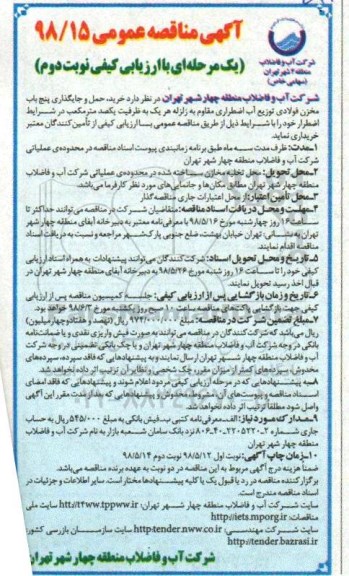 آگهی مناقصه عمومی ۹۸/۱۵
(یک مرحله‌ای با ارزیابی کیفی نوبت دوم)
شرکت آب و فاضلاب
منطقه ۴ شهر تهران
(سهامی خاص)
شرکت آب و فاضلاب منطقه چهار شهر تهران در نظر دارد خرید، حمل و جایگذاری پنج باب
مخزن فولادی توزیع آب اضطراری مقاوم به زلزله هر یک به ظرفیت یکصد مترمکعب در شرایط
اضطرار خود را با شرایط ذیل از طریق مناقصه عمومی با ارزیابی کیفی از تأمین‌کنندگان معتبر
خریداری نماید.
۱-مدت: ظرف مدت سه ماه طبق برنامه زمانبندی پیوست اسناد مناقصه در محدوده‌ی عملیاتی
شرکت آب و فاضلاب منطقه چهار شهر تهران
۲-محل تحویل: محل تخلیه مخازن ساخته شده در محدوده‌ی عملیاتی شرکت آب و فاضلاب
منطقه چهار شهر تهران مطابق مکان‌ها و جانمایی‌های مورد نظر کارفرما می‌باشد.
۳-محل تامین اعتبار: از محل اعتبارات جاری مناقصه گذار
۴-مهلت و محل دریافت اسناد مناقصه: متقاضیان شرکت در مناقصه می‌توانند حداکثر تا
ساعت ۱۶ روز چهارشنبه مورخ ۹۸/۵/۱۶ با معرفی‌نامه معتبر به دبیرخانه آبفای منطقه چهار شهر
تهران به نشانی: تهران خیابان بهشت، ضلع جنوبی پارک شهر مراجعه و نسبت به دریافت اسناد
مناقصه اقدام نمایند.
۵-تاریخ و محل تحویل اسناد: شرکت‌کنندگان می‌توانند پیشنهادات به همراه اسناد ارزیابی
کیفی خود را تا ساعت ۱۶ روز شنبه مورخ ۹۸/۵/۲۶ به دبیرخانه آبفای منطقه چهار شهر تهران در
قبال اخذ رسید تحویل نمایند.
۶-تاریخ و زمان بازگشایی پس از ارزیابی کیفی: جلسه کمیسیون مناقصه پس از ارزیابی
کیفی جهت بازگشایی پاکت‌های مناقصه ساعت صبح روز یکشنبه مورخ ۹۸/۶/۳ خواهد بود.
۷-مبلغ تضمین شرکت در مناقصه: مبلغ (نهصد و هفتاد و چهار میلیون)
ریال می‌باشد که شرکت‌کنندگان در مناقصه می‌توانند به صورت فیش واریزی نقدی و یا ضمانت‌نامه
بانکی در وجه شرکت آب و فاضلاب منطقه چهار شهر تهران و یا چک بانکی تضمینی در وجه شرکت
آب و فاضلاب منطقه چهار شهر تهران ارسال نمایند و به پیشنهادهایی که فاقد سپرده، سپرده‌های
مخدوش، سپرده‌های کمتر از میزان مقرر، چک شخصی و نظایر آن ترتیب اثر داده نخواهد شد.
۸-به پیشنهادهایی که در مرحله ارزیابی کیفی مردود اعلام شوند و پیشنهادهایی که فاقد امضای
اسناد مناقصه و پیوست‌های آن مشروط، مخدوش و پیشنهادهایی که بعد از مدت مقرر این آگهی
واصل شود مطلقا ترتیب اثر داده نخواهد شد.
۹-مدارک مورد نیاز: الف-معرفی‌نامه کتبی ب-فیش بانکی به مبلغ ۵۴۵/۰۰۰ ریال به حساب
جاری شماره نزد بانک سامان شعبه بازار به نام شرکت آب و فاضلاب
منطقه چهار شهر تهران
۱۰-زمان چاپ آگهی: نوبت اول ۹۸/۵/۱۲ نوبت دوم ۹۸/۵/۱۴
ضمنا هزینه درج آگهی مربوط به این مناقصه در دو نوبت به عهده برنده مناقصه می‌باشد.
برگزارکننده مناقصه در رد یا قبول یک یا کلیه پیشنهادها مختار است. سایر اطلاعات و جزئیات در
اسناد مناقصه مندرج است.
سایت شرکت آب و فاضلاب منطقه چهار شهر تهران: سایت ملی
مناقصات: http://iets.mporg.ir
سایت شرکت مهندسی: http:tender.nww.co.ir سایت سازمان بازرسی کشور:
http://tender.bazrasi.ir
شرکت آب و فاضلاب منطقه چهار شهر تهران